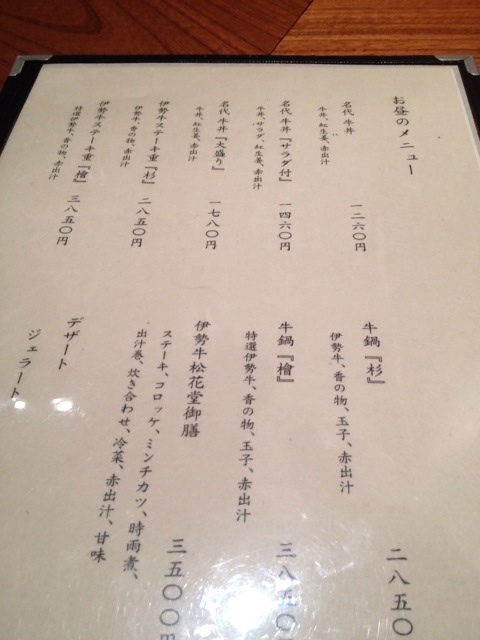 お昼のメニュー
名代 牛丼
牛丼、紅生姜、赤出汁
一二六〇円
名代 牛丼『サラダ付』
牛丼、サラダ、紅生姜、赤出汁
一四六〇円
名代 牛丼『大盛り』
牛丼、紅生姜、赤出汁
一七八〇円
伊勢牛ステーキ重『杉』
伊勢牛、香の物、赤出汁
二八五〇円
伊勢牛ステーキ重『檜』
特選伊勢牛、香の物、赤出汁
三八五〇円
牛鍋『杉』
伊勢牛、香の物、玉子、赤出汁
二八五〇
牛鍋『檜』
特選伊勢牛、香の物、玉子、赤出汁
三八五〇
伊勢牛松花堂御膳
ステーキ、コロッケ、ミンチカツ、時雨煮、
出汁巻、炊き合わせ、冷菜、赤出汁、甘味
三五〇〇円
デザート
ジェラート